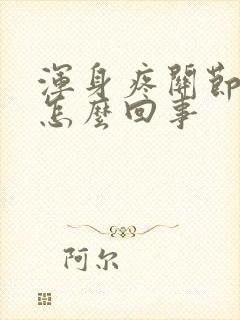 渾身疼關節
怎麼回事
阿尔